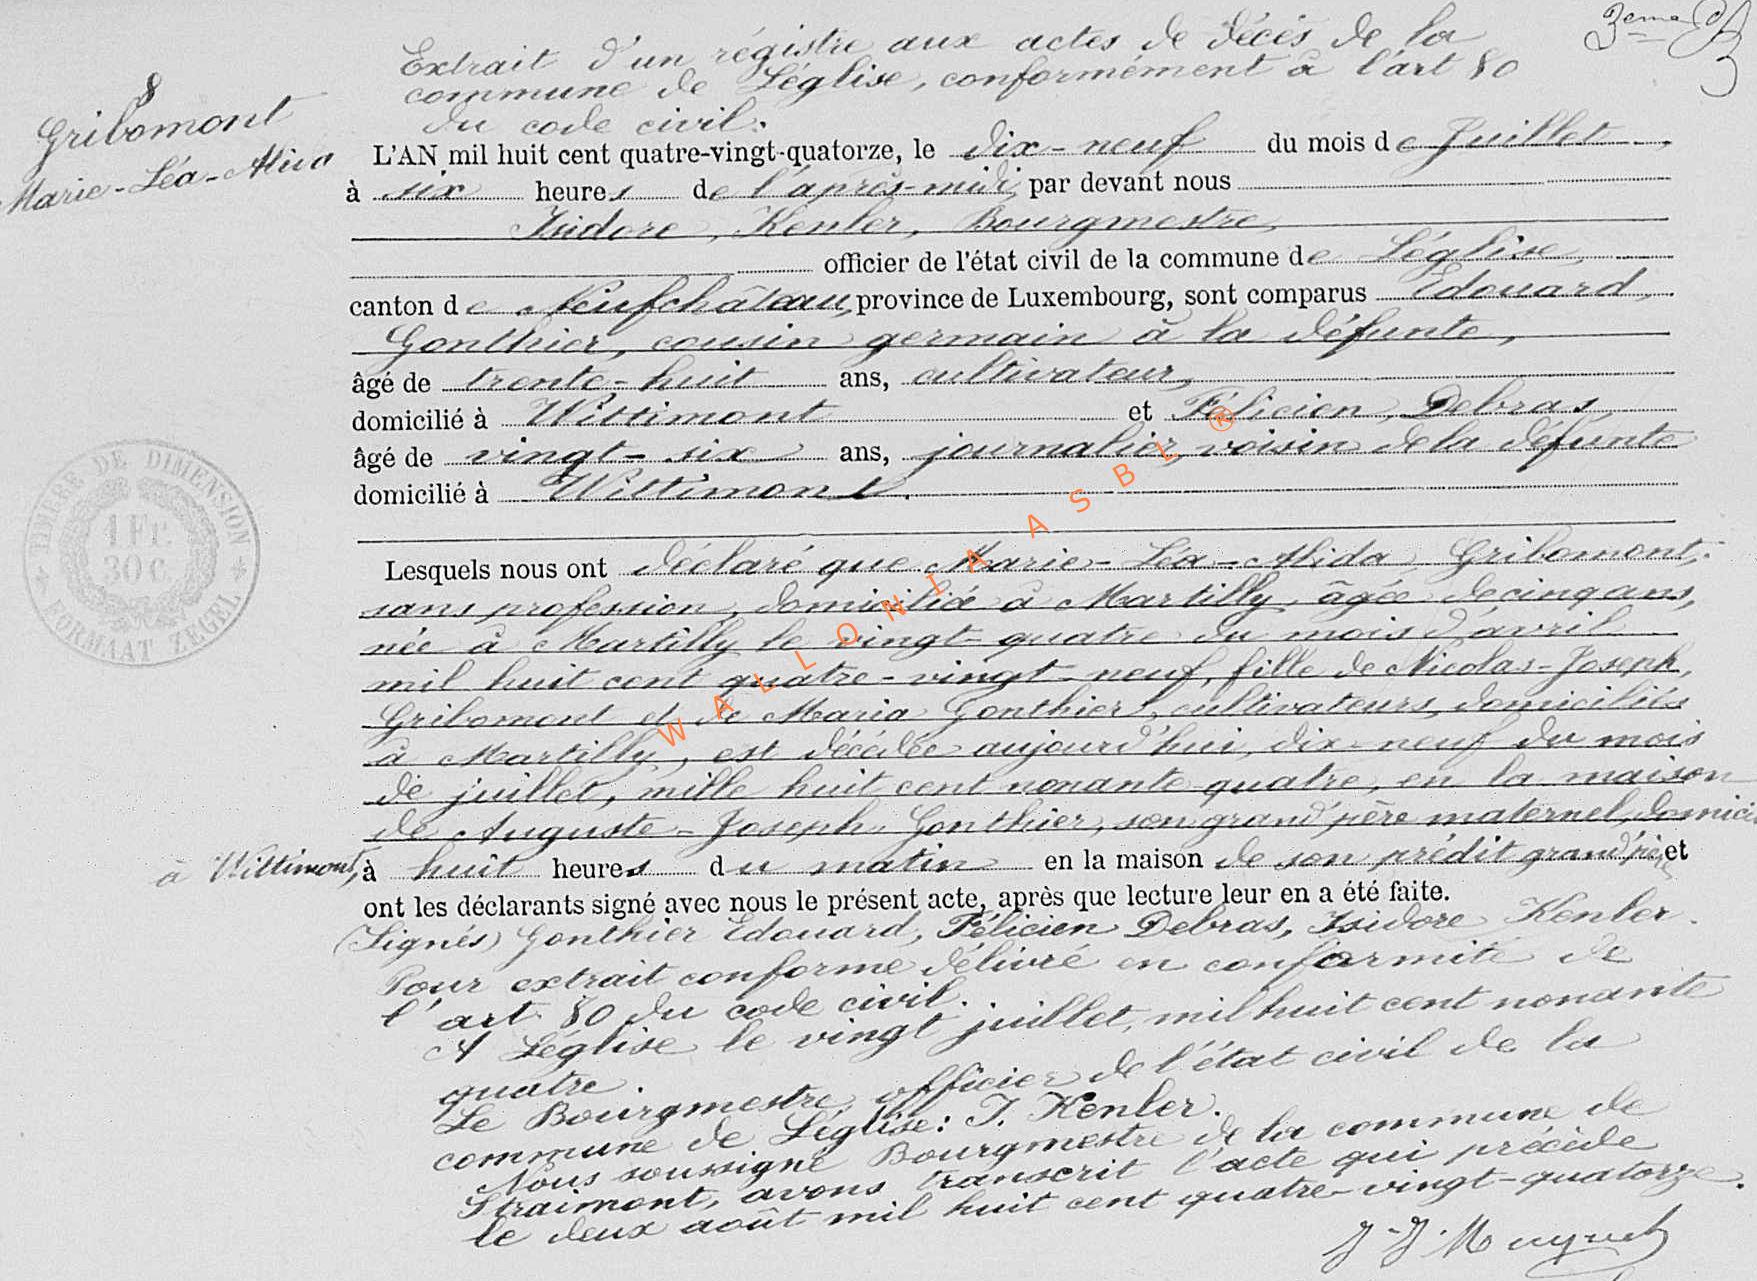 3eme
Extrait d'un régistre aux actes de décès de la
commune de Léglise, conformément à l'art 80
du code civil.
8
Gribomont
Marie-Léa-Alida
L'AN mil huit cent quatre-vingt-quatorze, le dix-neuf du mois de Juillet,
à six heures de l'après-midi, par devant nous
Isidore, Kenler, Bourgmestre,
officier de l'état civil de la commune de Léglise,
canton de Neufchâteau, province de Luxembourg, sont comparus Edouard,
Gonthier, cousin germain à la défunte,
âgé de trente-huit ans, cultivateur,
domicilié à Wittimont et Félicien, Debras,
âgé de vingt-six ans, journalier, voisin de la défunte
domicilié à Wittimont.
TIMBRE DE DIMENSION
1 Fr.
30 C.
FORMAAT ZEGEL
Lesquels nous ont déclaré que Marie-Léa-Alida Gribomont,
sans profession, domiciliée à Martilly, âgée de cinq ans,
née à Martilly le vingt-quatre du mois d'avril
mil huit cent quatre-vingt-neuf, fille de Nicolas-Joseph,
Gribomont et de Maria Gonthier, cultivateurs, domiciliés
à Martilly, est décédée aujourd'hui, dix-neuf du mois
de juillet, mille huit cent nonante quatre, en la maison
de Auguste-Joseph Gonthier, son grand'père maternel, domicilié
à Wittimont, à huit heures du matin en la maison de son prédit grand'père et
ont les déclarants signé avec nous le présent acte, après que lecture leur en a été faite.
(Signés) Gonthier Edouard, Félicien Debras, Isidore Kenler.
Pour extrait conforme délivré en conformité de
l'art. 80 du code civil.
A Léglise le vingt juillet, mil huit cent nonante
quatre.
Le Bourgmestre officier de l'état civil de la
commune de Léglise: I. Kenler.
Nous soussigné Bourgmestre de la commune de
Straimont, avons transcrit l'acte qui précède
le deux août mil huit cent quatre-vingt-quatorze.
WALLONIA ASBL ®